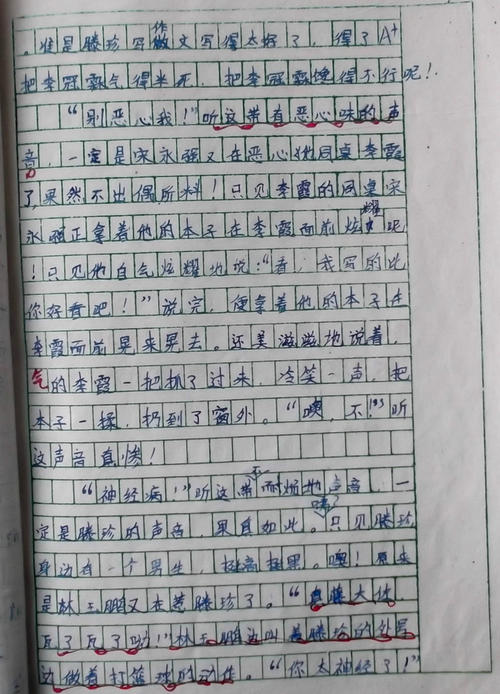 。准是滕珍写作文写得太好了，得了A+
把李冠霸气得半死，把李冠霸馋得不行呢！
“别恶心我！”听这带有恶心味的声
音，一定是宋永强又在恶心他同桌李霞
了，果然不出偶所料！只见李霞的同桌宋
永强正拿着他的本子在李霞面前炫耀呢
！只见他自气炫耀地说：“看，我写的比
你好看吧！”说完，便拿着他的本子在
李霞面前晃来晃去。还美滋滋地说着，
气的李霞一把抓了过来，冷笑一声，把
本子一揉，扔到了窗外。“噢，不！”听
这声音真惨！
“神经病！”听这带不耐烦地声音，一
定是滕珍的声音，果真如此。只见滕珍
身边有一个男生，挺高挺黑。噢！原来
是林玉鹏又在惹滕珍了。“大侠
瓦了瓦了啦！”林玉鹏边叫着滕珍的外号
边做着打篮球的动作。“你太神经了！”